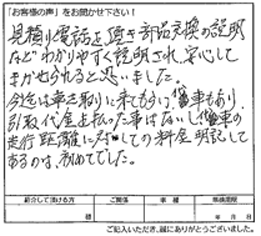 「お客様の声」をお聞かせ下さい!
見積り電話を頂き部品交換の説明
などわかりやすく説明され、安心して
まかせられると思いました。
今迄は車を取りに来てもらい、代車もあり
引取代金を払った事はないし代車の
走行距離に対しての料金明記して
あるのは、初めてでした。
紹介して頂ける方 ご関係 車種 車検満期
様 年 月 日
ご記入いただき、誠にありがとうございました。